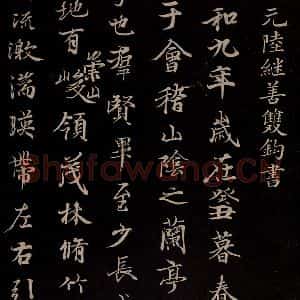 元陸继善雙鈎書
和九年歲在癸暮春
于會稽山陰之蘭亭
也羣賢畢至少長
地有崇山峻領茂林脩竹
流激湍暎帶左右引
Shufawang.CN